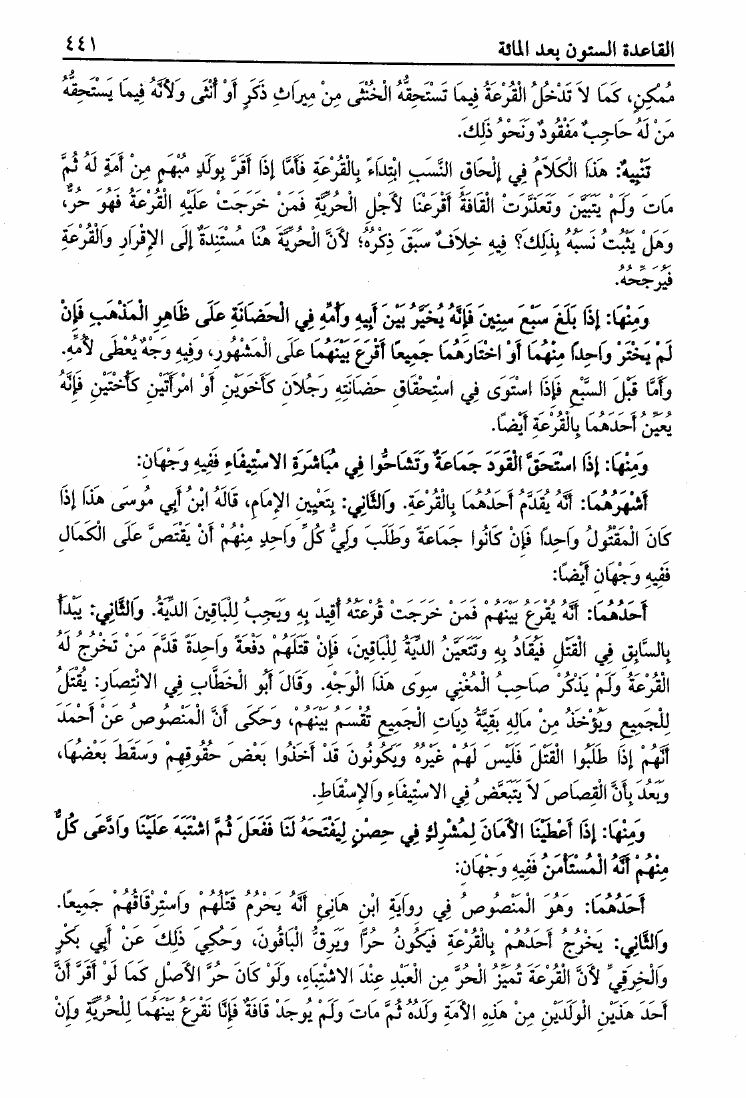 القاعدة الستون بعد المائة ٤٤١
مُمْكِنٍ، كَمَا لاَ تَدْخُلُ الْقُرْعَةُ فِيمَا تَسْتَحِقُّهُ الْخُنْثَى مِنْ مِيرَاثِ ذَكَرٍ أَوْ أُنْثَى وَلأَنَّهُ فِيمَا يَسْتَحِقُّهُ
مَنْ لَهُ حَاجِبٌ مَفْقُودٌ وَنَحْوُ ذَلِكَ.
تَنْبِيهٌ: هَذَا الْكَلاَمُ فِي إلْحَاقِ النَّسَبِ ابْتِدَاءً بِالْقُرْعَةِ فَأَمَّا إذَا أَقَرَّ بِوَلَدٍ مُبْهَمٍ مِنْ أَمَةٍ لَهُ ثُمَّ
مَاتَ وَلَمْ يَتَبَيَّنْ وَتَعَذَّرَتْ الْقَافَةُ أَقْرَعْنَا لأَجْلِ الْحُرِّيَّةِ فَمَنْ خَرَجَتْ عَلَيْهِ الْقُرْعَةُ فَهُوَ حُرٌّ،
وَهَلْ يَثْبُتُ نَسَبُهُ بِذَلِكَ؟ فِيهِ خِلاَفٌ سَبَقَ ذِكْرُهُ؛ لأَنَّ الْحُرِّيَّةَ هُنَا مُسْتَنِدَةٌ إلَى الإِقْرَارِ وَالْقُرْعَةِ
فَيُرَجِّحُهُ.
وَمِنْهَا: إذَا بَلَغَ سَبْعَ سِنِينَ فَإِنَّهُ يُخَيَّرُ بَيْنَ أَبِيهِ وَأُمِّهِ فِي الْحَضَانَةِ عَلَى ظَاهِرِ الْمَذْهَبِ فَإِنْ
لَمْ يَخْتَرْ وَاحِدًا مِنْهُمَا أَوْ اخْتَارَهُمَا جَمِيعًا أُقْرِعَ بَيْنَهُمَا عَلَى الْمَشْهُورِ، وَفِيهِ وَجْهٌ يُعْطَى لأُمِّهِ.
وَأَمَّا قَبْلَ السَّبْعِ فَإِذَا اسْتَوَى فِي اسْتِحْقَاقِ حَضَانَتِهِ رَجُلاَنِ كَأَخَوَيْنِ أَوْ امْرَأَتَيْنِ كَأُخْتَيْنِ فَإِنَّهُ
يُعَيَّنُ أَحَدُهُمَا بِالْقُرْعَةِ أَيْضًا.
وَمِنْهَا: إذَا اسْتَحَقَّ الْقَوَدَ جَمَاعَةٌ وَتَشَاحُّوا فِي مُبَاشَرَةِ الاسْتِيفَاءِ فَفِيهِ وَجْهَانِ:
أَشْهَرُهُمَا: أَنَّهُ يُقَدَّمُ أَحَدُهُمَا بِالْقُرْعَةِ. وَالثَّانِي: بِتَعْيِينِ الإِمَامِ، قَالَهُ ابْنُ أَبِي مُوسَى هَذَا إذَا
كَانَ الْمَقْتُولُ وَاحِدًا فَإِنْ كَانُوا جَمَاعَةً وَطَلَبَ وَلِيُّ كُلِّ وَاحِدٍ مِنْهُمْ أَنْ يَقْتَصَّ عَلَى الْكَمَالِ
فَفِيهِ وَجْهَانِ أَيْضًا:
أَحَدُهُمَا: أَنَّهُ يُقْرَعُ بَيْنَهُمْ فَمَنْ خَرَجَتْ قُرْعَتُهُ أُقِيدَ بِهِ وَيَجِبُ لِلْبَاقِينَ الدِّيَةُ. وَالثَّانِي: يَبْدَأُ
بِالسَّابِقِ فِي الْقَتْلِ فَيُقَادُ بِهِ وَتَتَعَيَّنُ الدِّيَةُ لِلْبَاقِينَ، فَإِنْ قَتَلَهُمْ دَفْعَةً وَاحِدَةً قَدَّمَ مَنْ تَخْرُجُ لَهُ
الْقُرْعَةُ وَلَمْ يَذْكُرْ صَاحِبُ الْمُغْنِي سِوَى هَذَا الْوَجْهِ. وَقَالَ أَبُو الْخَطَّابِ فِي الانْتِصَارِ: يُقْتَلُ
لِلْجَمِيعِ وَيُؤْخَذُ مِنْ مَالِهِ بَقِيَّةُ دِيَاتِ الْجَمِيعِ تُقْسَمُ بَيْنَهُمْ، وَحَكَى أَنَّ الْمَنْصُوصَ عَنْ أَحْمَدَ
أَنَّهُمْ إذَا طَلَبُوا الْقَتْلَ فَلَيْسَ لَهُمْ غَيْرُهُ وَيَكُونُونَ قَدْ أَخَذُوا بَعْضَ حُقُوقِهِمْ وَسَقَطَ بَعْضُهَا،
وَبَعُدَ بِأَنَّ الْقِصَاصَ لاَ يَتَبَعَّضُ فِي الاسْتِيفَاءِ وَالإِسْقَاطِ.
وَمِنْهَا: إذَا أَعْطَيْنَا الأَمَانَ لِمُشْرِكٍ فِي حِصْنٍ لِيَفْتَحَهُ لَنَا فَفَعَلَ ثُمَّ اشْتَبَهَ عَلَيْنَا وَادَّعَى كُلٌّ
مِنْهُمْ أَنَّهُ الْمُسْتَأْمَنُ فَفِيهِ وَجْهَانِ:
أَحَدُهُمَا: وَهُوَ الْمَنْصُوصُ فِي رِوَايَةِ ابْنِ هَانِئٍ أَنَّهُ يَحْرُمُ قَتْلُهُمْ وَاسْتِرْقَاقُهُمْ جَمِيعًا.
وَالثَّانِي: يَخْرُجُ أَحَدُهُمْ بِالْقُرْعَةِ فَيَكُونُ حُرًّا وَيَرِقُّ الْبَاقُونَ، وَحُكِيَ ذَلِكَ عَنْ أَبِي بَكْرٍ
وَالْخِرَقِيِّ لأَنَّ الْقُرْعَةَ تُمَيِّزُ الْحُرَّ مِنَ الْعَبْدِ عِنْدَ الاشْتِبَاهِ، وَلَوْ كَانَ حُرَّ الأَصْلِ كَمَا لَوْ أَقَرَّ أَنَّ
أَحَدَ هَذَيْنِ الْوَلَدَيْنِ مِنْ هَذِهِ الأَمَةِ وَلَدُهُ ثُمَّ مَاتَ وَلَمْ يُوجَدْ قَافَةٌ فَإِنَّا نَقْرَعُ بَيْنَهُمَا لِلْحُرِّيَّةِ وَإِنْ